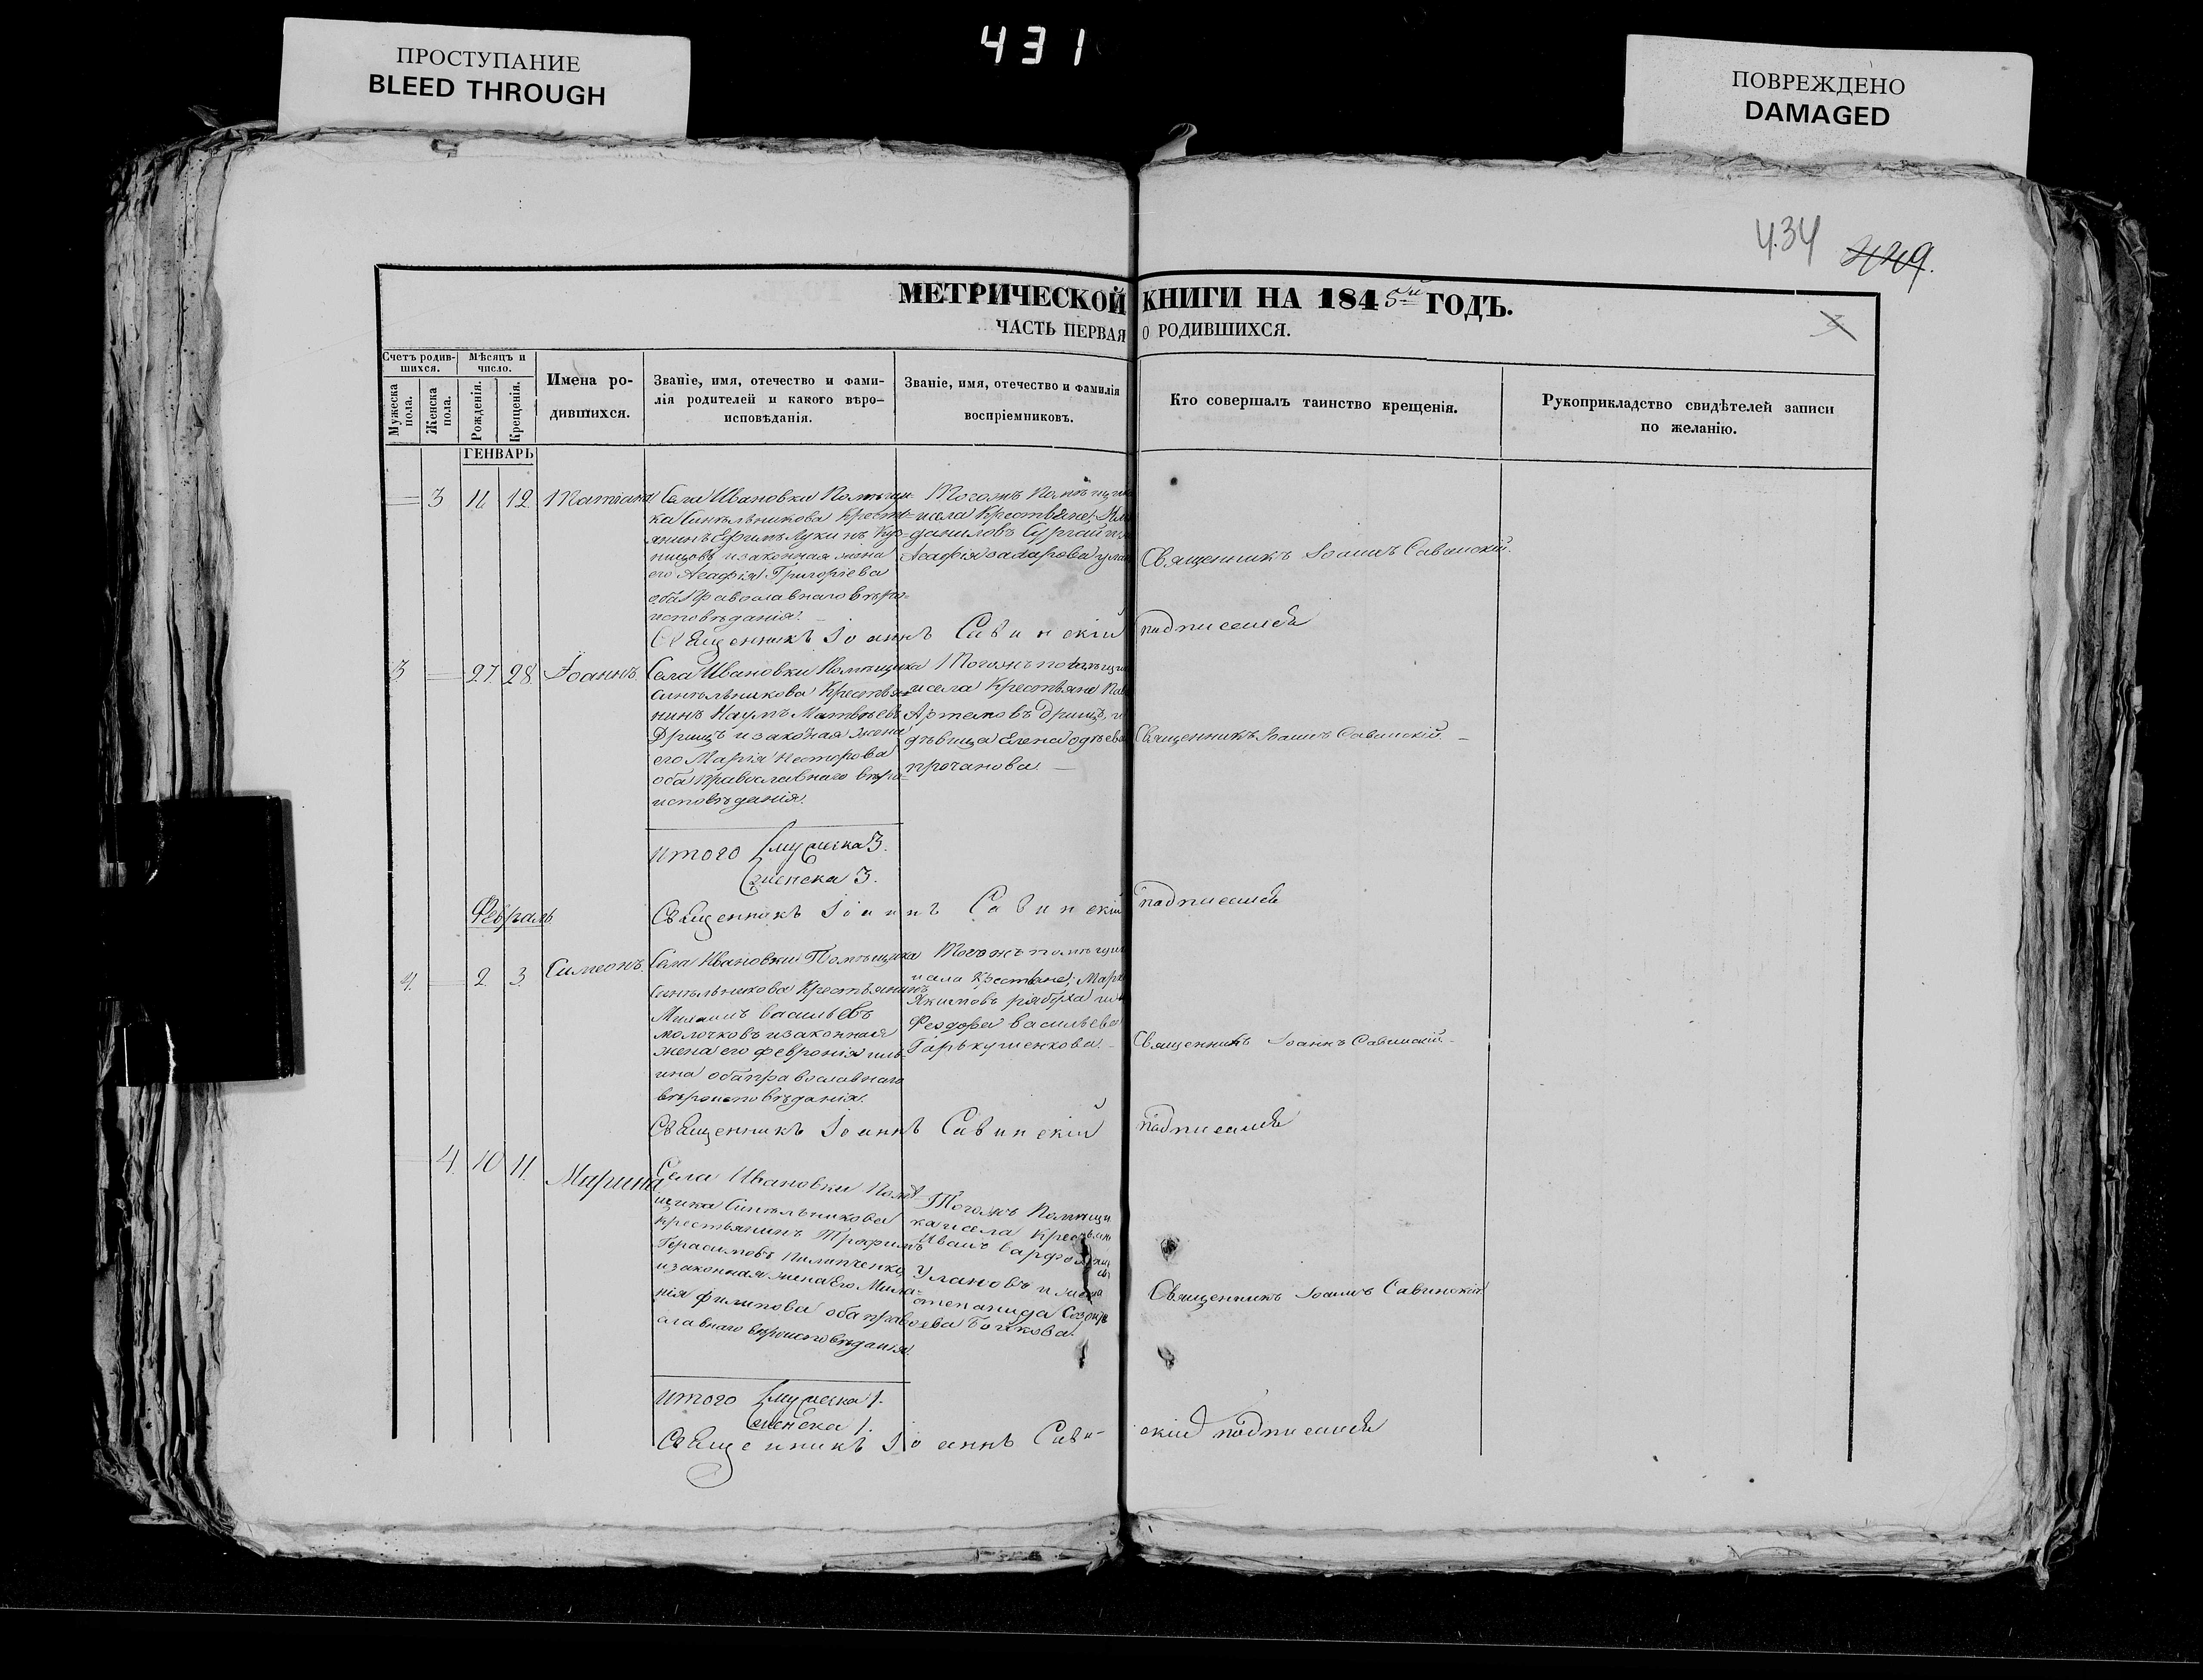 ПРОСТУПАНИЕ
BLEED THROUGH
431
ПОВРЕЖДЕНО
DAMAGED
434
449.
МЕТРИЧЕСКОЙ КНИГИ НА 1845й ГОДЪ.
ЧАСТЬ ПЕРВАЯ О РОДИВШИХСЯ.
Счетъ родив-
шихся.
Мужеска
пола.
Женска
пола.
Мѣсяцъ и
число.
Рожденія.
Крещенія.
Имена ро-
дившихся.
Званіе, имя, отечество и фами-
лія родителей и какого вѣро-
исповѣданія.
Званіе, имя, отечество и фамилія
воспріемниковъ.
Кто совершалъ таинство крещенія.
Рукоприкладство свидѣтелей записи
по желанію.
ГЕНВАРЬ
3 11 12 Татіана
Села Ивановки Помѣщи-
ка Синѣльникова Крестья-
янинъ Ефимъ Лукинъ
и законная жена
его Агафія Григоріева
оба Православнаго вѣро-
исповѣданія.
Тогожъ Помѣщика
и села Крестьяне
Даниловъ
Агафія
Священникъ Іоаннъ Савинскій.
Священникъ Іоаннъ Савинскій подписался
3 27 28 Іоаннъ
Села Ивановки Помѣщика
Синѣльникова Крестья-
нинъ Наумъ Матвѣевъ
Дрищъ и законая жена
его Марія Несторова
оба православнаго вѣро-
исповѣданія.
Тогожъ помѣщи
и села Крестьяне
Артемовъ Дрищъ, и
дѣвица Елена
Священникъ Іоаннъ Савинскій.
итого мужеска 3.
женска 3.
Священникъ Іоаннъ Савинскій подписался
Февраль
4. 2 3. Симеонъ.
Села Ивановки Помѣщика
Синѣльникова Крестьянинъ
Михаилъ васильевъ
молочковъ и законная
жена его февронія иль-
ина оба православнаго
вѣроисповѣданія.
Тогожъ помѣщи
и села Крестьяне;
Якимовъ рябуха
Феодора васильева
Горькушенкова.
Священникъ Іоаннъ Савинскій.
Священникъ Іоаннъ Савинскій подписался
4. 10 11. Марина
Села Ивановки Помѣ-
щика Синѣльникова
крестьянинъ Трофимъ
Герасимовъ Пилипченко
и законная жена Его Мила-
нія филипова оба право-
славнаго вѣроисповѣданія.
Тогожъ Помѣщи
ка и села
Иванъ
Улановъ и
степанида
Бочкова.
Священникъ Іоаннъ Савинскій
итого мужеска 1.
женска 1.
Священникъ Іоаннъ Сави- скій подписался